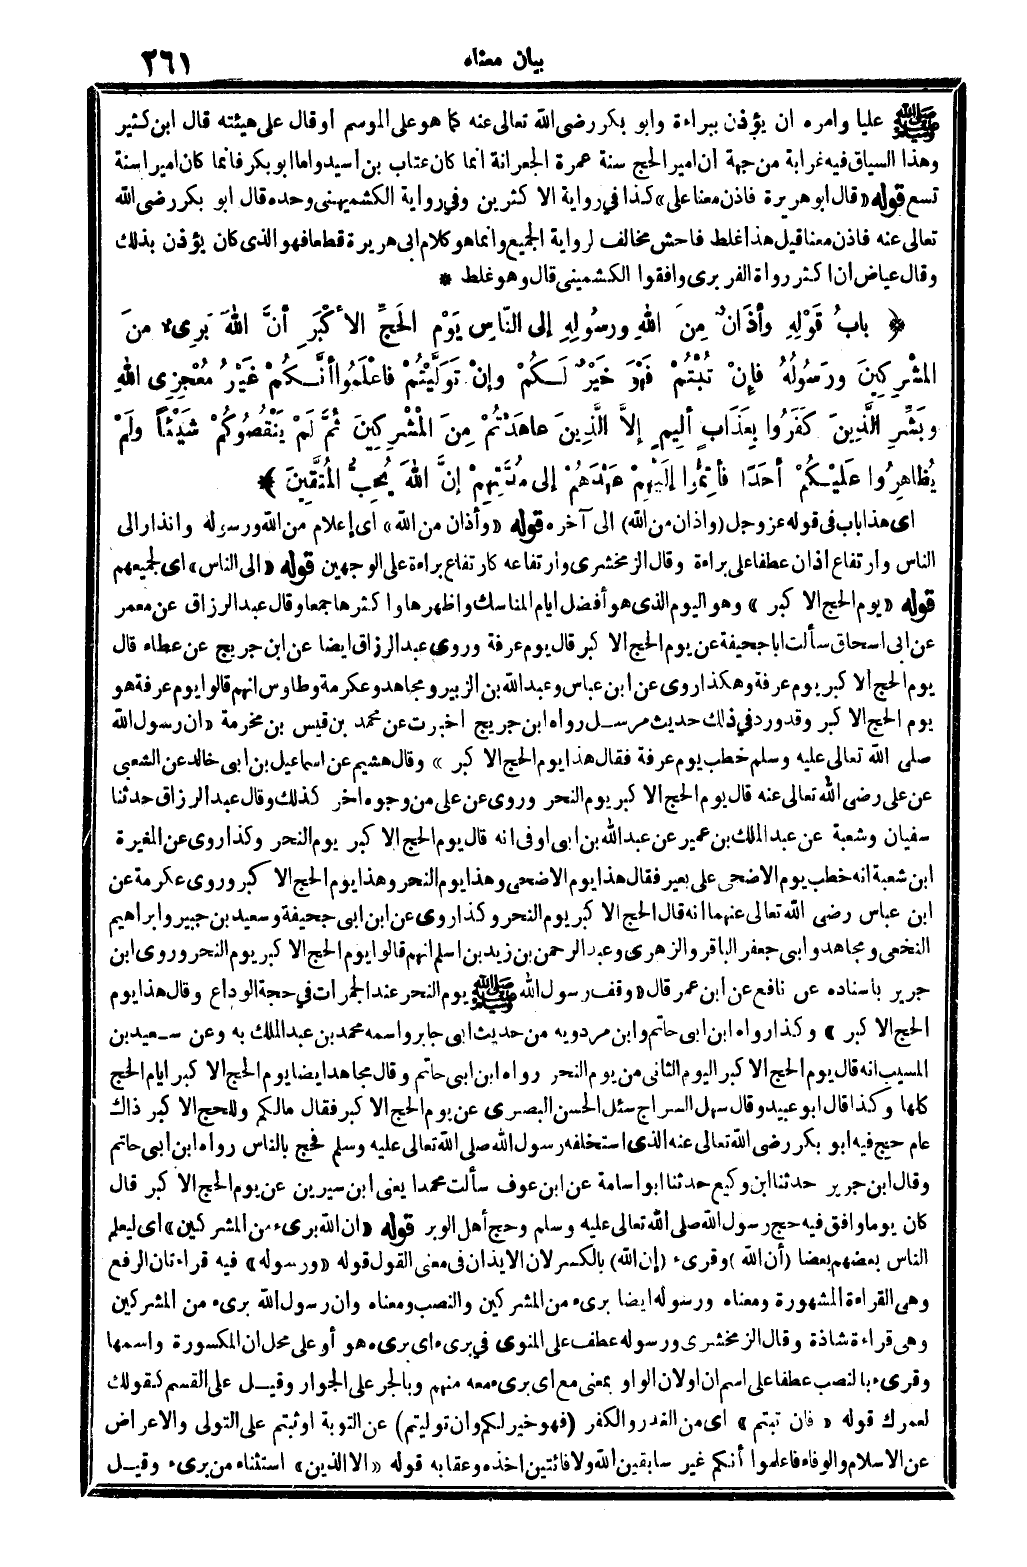 بيان معناه ٢٦١
ﷺ عليا وامره ان يؤذن ببراءة وابو بكر رضى الله تعالى عنه كما هو على الموسم أو قال على هيئته قال ابن كثير
وهذا السياق فيه غرابة من جهة أن امير الحج سنة عمرة الجعرانة انما كان عتاب بن أسيد واما ابو بكر فانما كان اميرا سنة
تسع قوله «قال ابو هريرة فاذن معنا على» كذا في رواية الا كثرين وفي رواية الكشميهنى وحده قال ابو بكر رضى الله
تعالى عنه فاذن معنا قيل هذا غلط فاحش مخالف لرواية الجميع وانما هو كلام ابى هريرة قطعا فهو الذى كان يؤذن بذلك
وقال عياض ان اكثر رواة الفربرى وافقوا الكشميني قال وهو غلط *
﴿ بابُ قَوْلِهِ وأذَانٌ مِنَ اللهِ ورسُولِهِ إلى النّاسِ يَوْمَ الحَجِّ الأكْبَرِ أنَّ اللهَ بَرِىءٌ منَ
المشْرِكِينَ ورَسُولُهُ فإنْ تُبْتُمْ فَهْوَ خيْرٌ لَكُمْ وإنْ تَوَلَّيْتُمْ فاعْلَمُوا أنَّكُمْ غَيْرُ مُعْجِزِى اللهِ
وبَشِّرِ الَّذِينَ كَفَرُوا بِعَذَابٍ أليمٍ إلاَّ الَّذِينَ عاهَدْتُمْ مِنَ المُشْرِكِينَ ثُمَّ لَمْ يَنْقُصُوكُمْ شَيْئاً ولَمْ
يُظاهِرُوا عَلَيْكُمْ أحَدًا فأتِمُّوا إلَيْهِمْ عَهْدَهُمْ إلى مدَّتِهِمْ إنَّ اللهَ يُحِبُّ المُتَّقِينَ ﴾
اى هذا باب فى قوله عز وجل (واذان من الله) الى آخره قوله «وأذان من الله» اى إعلام من الله ورسوله وانذار الى
الناس وارتفاع اذان عطفا على براءة وقال الزمخشرى وارتفاعه كارتفاع براءة على الوجهين قوله «الى الناس» اى لجميعهم
قوله «يوم الحج الا كبر» وهو اليوم الذى هو أفضل ايام المناسك واظهرها واكثرها جمعا وقال عبد الرزاق عن معمر
عن ابى اسحاق سألت ابا جحيفة عن يوم الحج الا كبر قال يوم عرفة وروى عبد الرزاق ايضا عن ابن جريج عن عطاء قال
يوم الحج الا كبر يوم عرفة وهكذا روى عن ابن عباس وعبد الله بن الزبير ومجاهد وعكرمة وطاوس انهم قالوا يوم عرفة هو
يوم الحج الا كبر وقد ورد في ذلك حديث مرسل رواه ابن جريج اخبرت عن محمد بن قيس بن مخرمة «ان رسول الله
صلى الله تعالى عليه وسلم خطب يوم عرفة فقال هذا يوم الحج الا كبر» وقال هشيم عن اسماعيل بن ابى خالد عن الشعبى
عن على رضى الله تعالى عنه قال يوم الحج الا كبر يوم النحر وروى عن على من وجوه اخر كذلك وقال عبد الرزاق حدثنا
سفيان وشعبة عن عبد الملك بن عمير عن عبد الله بن ابى اوفى انه قال يوم الحج الا كبر يوم النحر وكذا روى عن المغيرة
ابن شعبة انه خطب يوم الاضحى على بعير فقال هذا يوم الاضحى وهذا يوم النحر وهذا يوم الحج الا كبر وروى عكرمة عن
ابن عباس رضى الله تعالى عنهما انه قال الحج الا كبر يوم النحر وكذا روى عن ابن ابى جحيفة وسعيد بن جبير وابراهيم
النخعى ومجاهد وابى جعفر الباقر والزهرى وعبد الرحمن بن زيد بن اسلم انهم قالوا يوم الحج الا كبر يوم النحر وروى ابن
جرير باسناده عن نافع عن ابن عمر قال «وقف رسول الله ﷺ يوم النحر عند الجمرات في حجة الوداع وقال هذا يوم
الحج الا كبر» وكذا رواه ابن ابى حاتم وابن مردويه من حديث ابى جابر واسمه محمد بن عبد الملك به وعن سعيد بن
المسيب انه قال يوم الحج الا كبر اليوم الثانى من يوم النحر رواه ابن ابى حاتم وقال مجاهد ايضا يوم الحج الا كبر ايام الحج
كلها وكذا قال ابو عبيد وقال سهل السراج سئل الحسن البصرى عن يوم الحج الا كبر فقال مالكم وللحج الا كبر ذاك
عام حج فيه ابو بكر رضى الله تعالى عنه الذى استخلفه رسول الله صلى الله تعالى عليه وسلم فحج بالناس رواه ابن ابى حاتم
وقال ابن جرير حدثنا ابن وكيع حدثنا ابو اسامة عن ابن عوف سألت محمدا يعنى ابن سيرين عن يوم الحج الا كبر قال
كان يوما وافق فيه حج رسول الله صلى الله تعالى عليه وسلم وحج أهل الوبر قوله «ان الله برىء من المشركين» اى ليعلم
الناس بعضهم بعضا (أن الله) وقرىء (إن الله) بالكسر لان الايذان فى معنى القول قوله «ورسوله» فيه قراءتان الرفع
وهى القراءة المشهورة ومعناه ورسوله ايضا برىء من المشركين والنصب ومعناه وان رسول الله برىء من المشركين
وهى قراءة شاذة وقال الزمخشرى ورسوله عطف على المنوى في برىء اى برىء هو أو على محل ان المكسورة واسمها
وقرىء بالنصب عطفا على اسم ان او لان الواو بمعنى مع اى برىء معه منهم وبالجر على الجوار وقيل على القسم كقولك
لعمرك قوله «فان تبتم» اى من الغدر والكفر (فهو خير لكم وان توليتم) عن التوبة او ثبتم على التولى والاعراض
عن الاسلام والوفاء فاعلموا أنكم غير سابقين الله ولا فائتين اخذه وعقابه قوله «الا الذين» استثناء من برىء وقيل